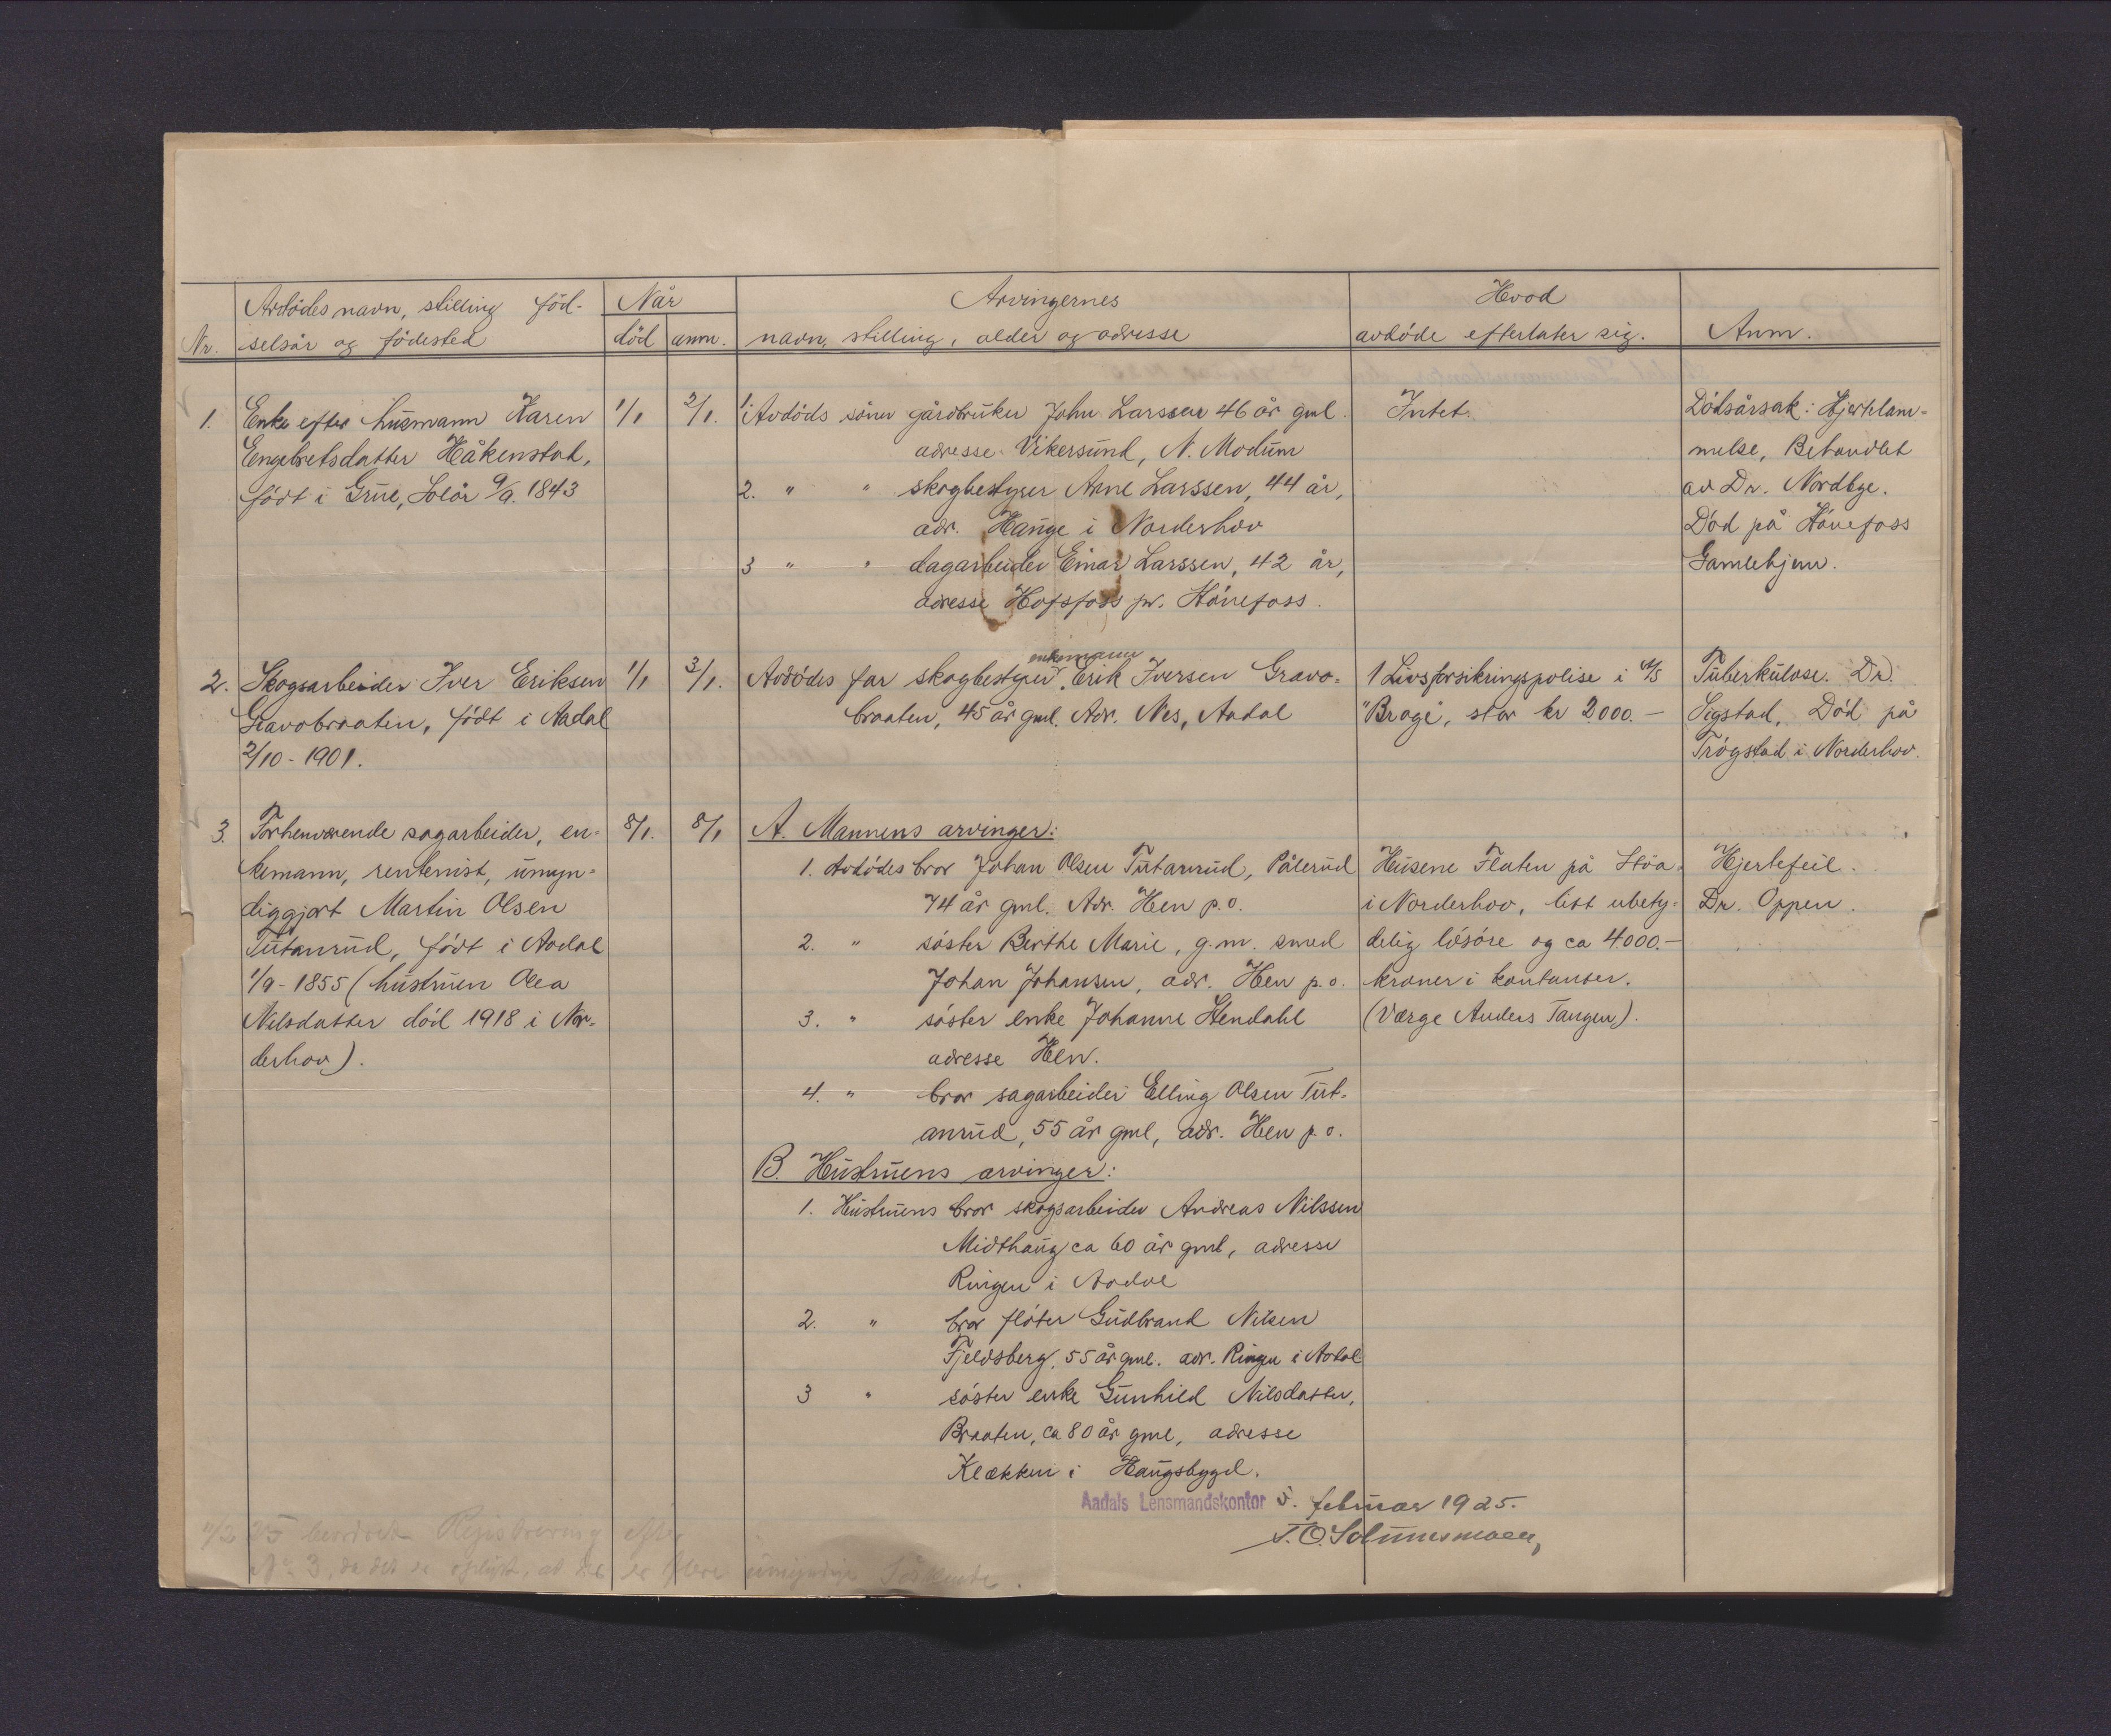 Nr.
Avdödes navn, stilling föd-
selsår og födested
Når
död anm.
Arvingernes
navn, stilling, alder og adresse
Hvad
avdöde efterlater sig.
Anm.
1.
Enke efter husmann Karen
Engebretsdatter Håkenstad,
födt i Grue, Solör 9/9. 1843
1/1
2/1.
1. Avdöds söner gårdbruker John Larssen 46 år gml.
adresse Vikersund, N. Modum
2. " " skogbestyrer Arne Larssen, 44 år,
adr. Hauge i Norderhov
3 " " dagarbeider Einar Larssen, 42 år,
adresse Hofsfoss pr. Hönefoss.
Intet.
Dödsårsak: Hjertelam-
melse, Behandlet
av Dr. Nordbye.
Död på Hönefoss
Gamlehjem.
2.
Skogsarbeider Iver Eriksen
Gravobraaten, födt i Aadal
2/10 - 1901.
1/1
3/1.
enkemann
Avdödes far skogbestyrer, Erik Iversen Gravo-
braaten, 45 år gml. Adr. Nes, Aadal
1 Livsforsikringspolise i A/S
"Brage", stor kr 2000.-
Tuberkulose. Dr.
Sigstad, Död på
Trögstad i Norderhov.
3.
Forhenværende sagarbeider, en-
kemann, rentenist, umyn-
diggjort Martin Olsen
Tutanrud, födt i Aadal
1/9 - 1855 (hustruen Olea
Nilsdatter död 1918 i Nor-
derhov).
8/1.
8/1
A. Mannens arvinger:
1. Avdödes bror Johan Olsen Tutanrud, Pålerud
74 år gml. Adr. Hen p.o.
2. " söster Berthe Marie, g.m. smed
Johan Johansen, adr. Hen p.o.
3. " söster enke Johanne Stendahl
adresse Hen.
4. " bror sagarbeider Elling Olsen Tut-
anrud, 55 år gml, adr. Hen p.o.
B. Hustruens arvinger:
1. Hustruens bror skogsarbeider Andreas Nilssen
Midthaug ca 60 år gml, adresse
Ringen i Aadal
2. " bror flöter Gudbrand Nilsen
Fjeldsberg, 55 år gml. adr. Ringen i Aadal
3 " söster enke Gunhild Nilsdatter,
Braaten, ca 80 år gml, adresse
Klækken i Haugsbygd.
Husene Flaten på Stöa
i Norderhov, litt ubety-
delig lösöre og ca 4000.-
kroner i kontanter.
(Værge Anders Tangen).
Hjertefeil.
Dr. Oppen.
Aadals Lensmandskontor 5. februar 1925.
T. O. Solumsmoen,
11/2 25 Registrering efter
No 3, da det er oplyst, at der er flere umyndige Söskende.